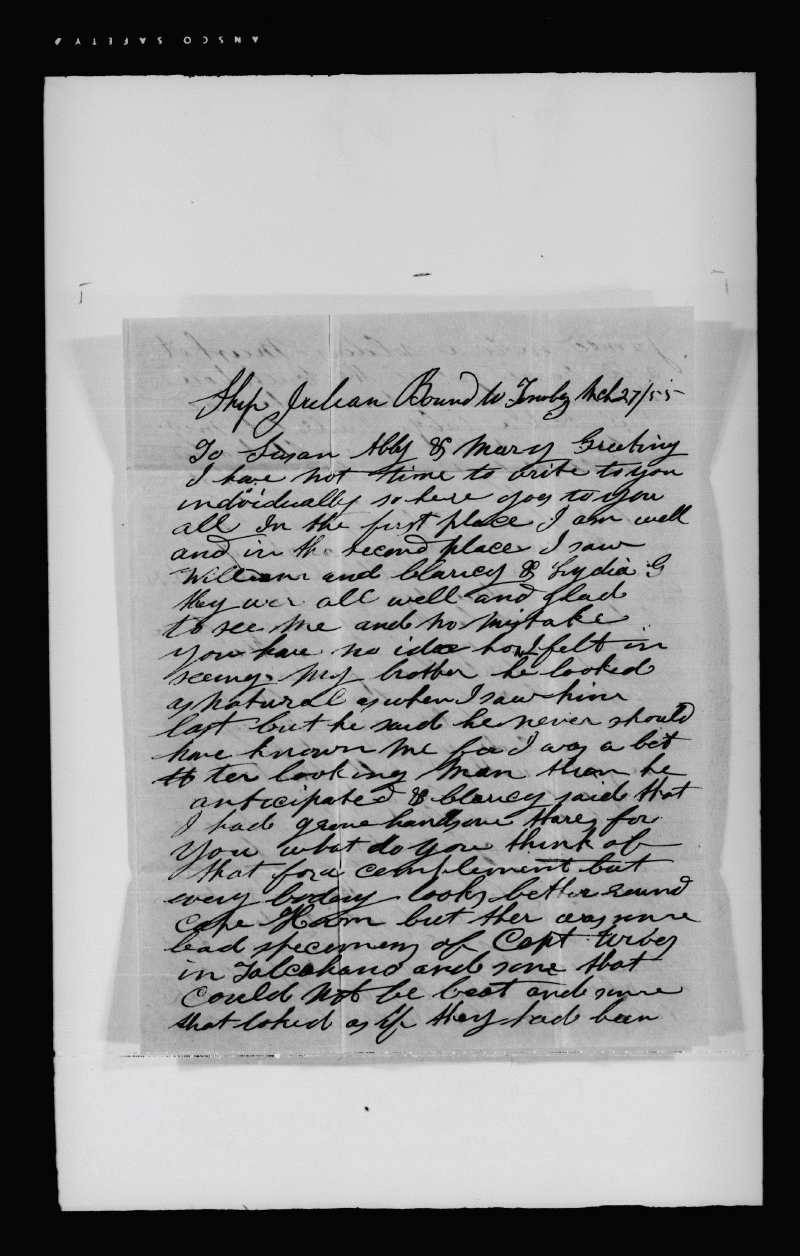 ANSCO SAFETY
Ship Julian Bound to Tombez Mch 27/55
To Susan Abby & Mary Greeting
I have not time to write to you
individually so here goes to you
all In the first place I am well
and in the second place I saw
William and Claricy & Lydia G
they wer all well and glad
to see me and no mistake
you have no idea how I felt in
seeing my brother he looked
as natural as when I saw him
last but he said he never should
have known me for I was a bet
ter looking man than he
anticipated & Claricy said that
I had grone handsome thares for
you what do you think of
that for a complement but
every bodary looks better round
Cape Hoorn but ther was some
bad specimens of Capt wives
in Talcahano and some that
could not be beat and some
that loked as if they had been